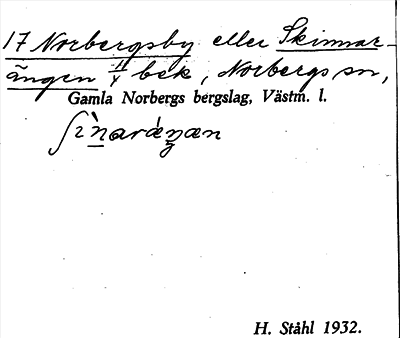 17 Norbergsby eller Skinnar-
ängen 11/V bek, Norbergs sn,
Gamla Norbergs bergslag, Västm. l.
H. Ståhl 1932.